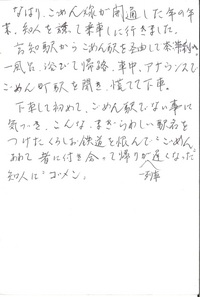 なはり、ごめん線が開通した年の年
末、知人を誘って乗車しに行きました。
安芸駅からごめん駅を経由して本
一風呂、浴びて帰路、車中、アナウンスで
ごめん町駅を聞き、慌てて下車。
下車して初めて、ごめん駅でない事に
気づき、こんな、まぎらわしい駅名を
つけたくろしお鉄道を恨んで
おわて者に付き合って帰りが遅くなった
一列車
知人に"ゴメン"